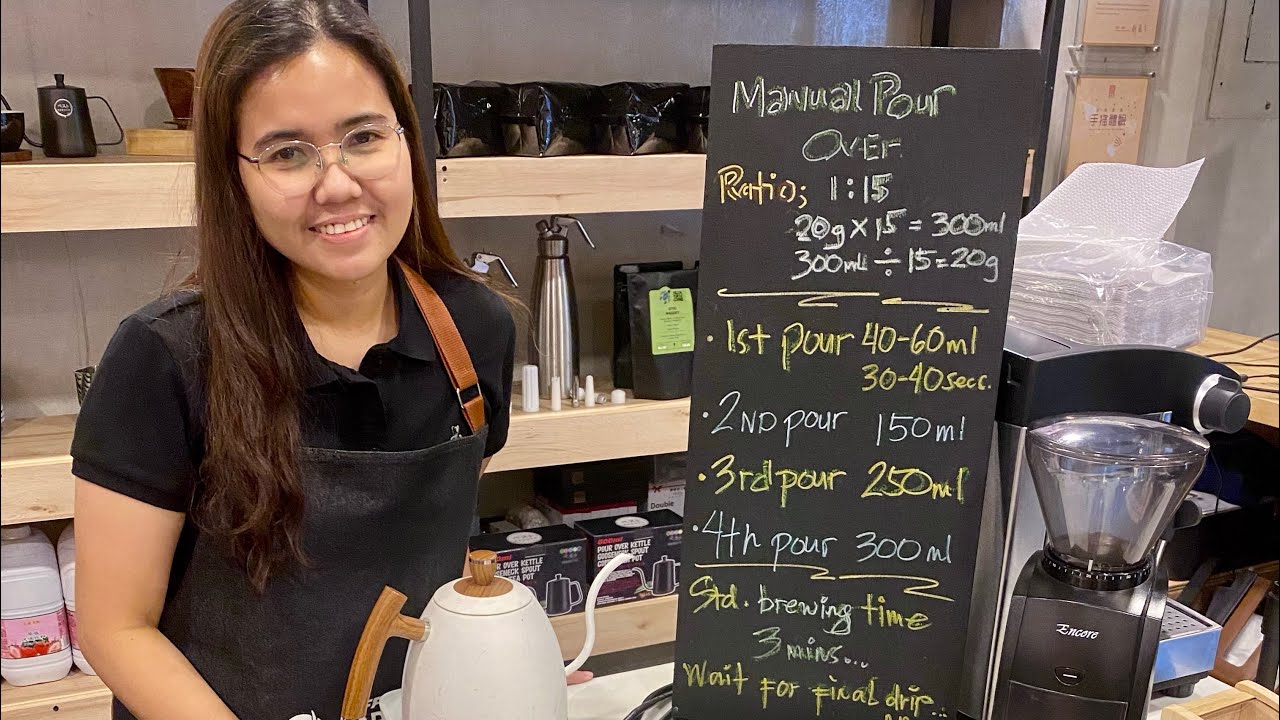 Manual Pour
Over
Ratio; 1:15
20g x 15 = 300ml
300ml ÷ 15 = 20g
• 1st pour 40-60ml
30-40secs.
• 2ND pour 150ml
• 3rd pour 250ml
• 4th pour 300ml
Std. brewing time
3 mins...
Wait for final drip...
手搖體驗
Double
600ml
POUR OVER KETTLE
GOOSENECK SPOUT
COFFEE & TEA POT
Encore